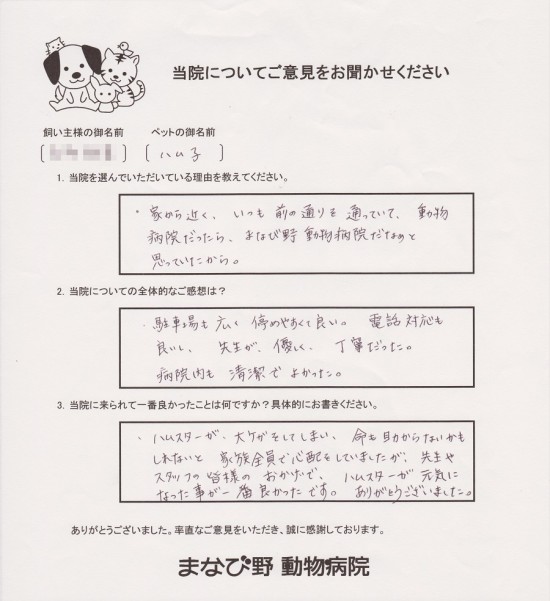 当院についてご意見をお聞かせください
飼い主様の御名前 ペットの御名前
ハム子
1. 当院を選んでいただいている理由を教えてください。
・家から近く、いつも前の通りを通っていて、動物
病院だったら、まなび野動物病院だなぁと
思っていたから。
2. 当院についての全体的なご感想は?
・駐車場も広く停めやすくて良い。電話対応も
良いし、先生が、優しく、丁寧だった。
病院内も清潔でよかった。
3. 当院に来られて一番良かったことは何ですか?具体的にお書きください。
・ハムスターが、大ケガをしてしまい、命も助からないかも
しれないと家族全員で心配をしていましたが、先生や
スタッフの皆様のおかげで、ハムスターが元気に
なった事が一番良かったです。ありがとうございました。
ありがとうございました。率直なご意見をいただき、誠に感謝しております。
まなび野 動物病院